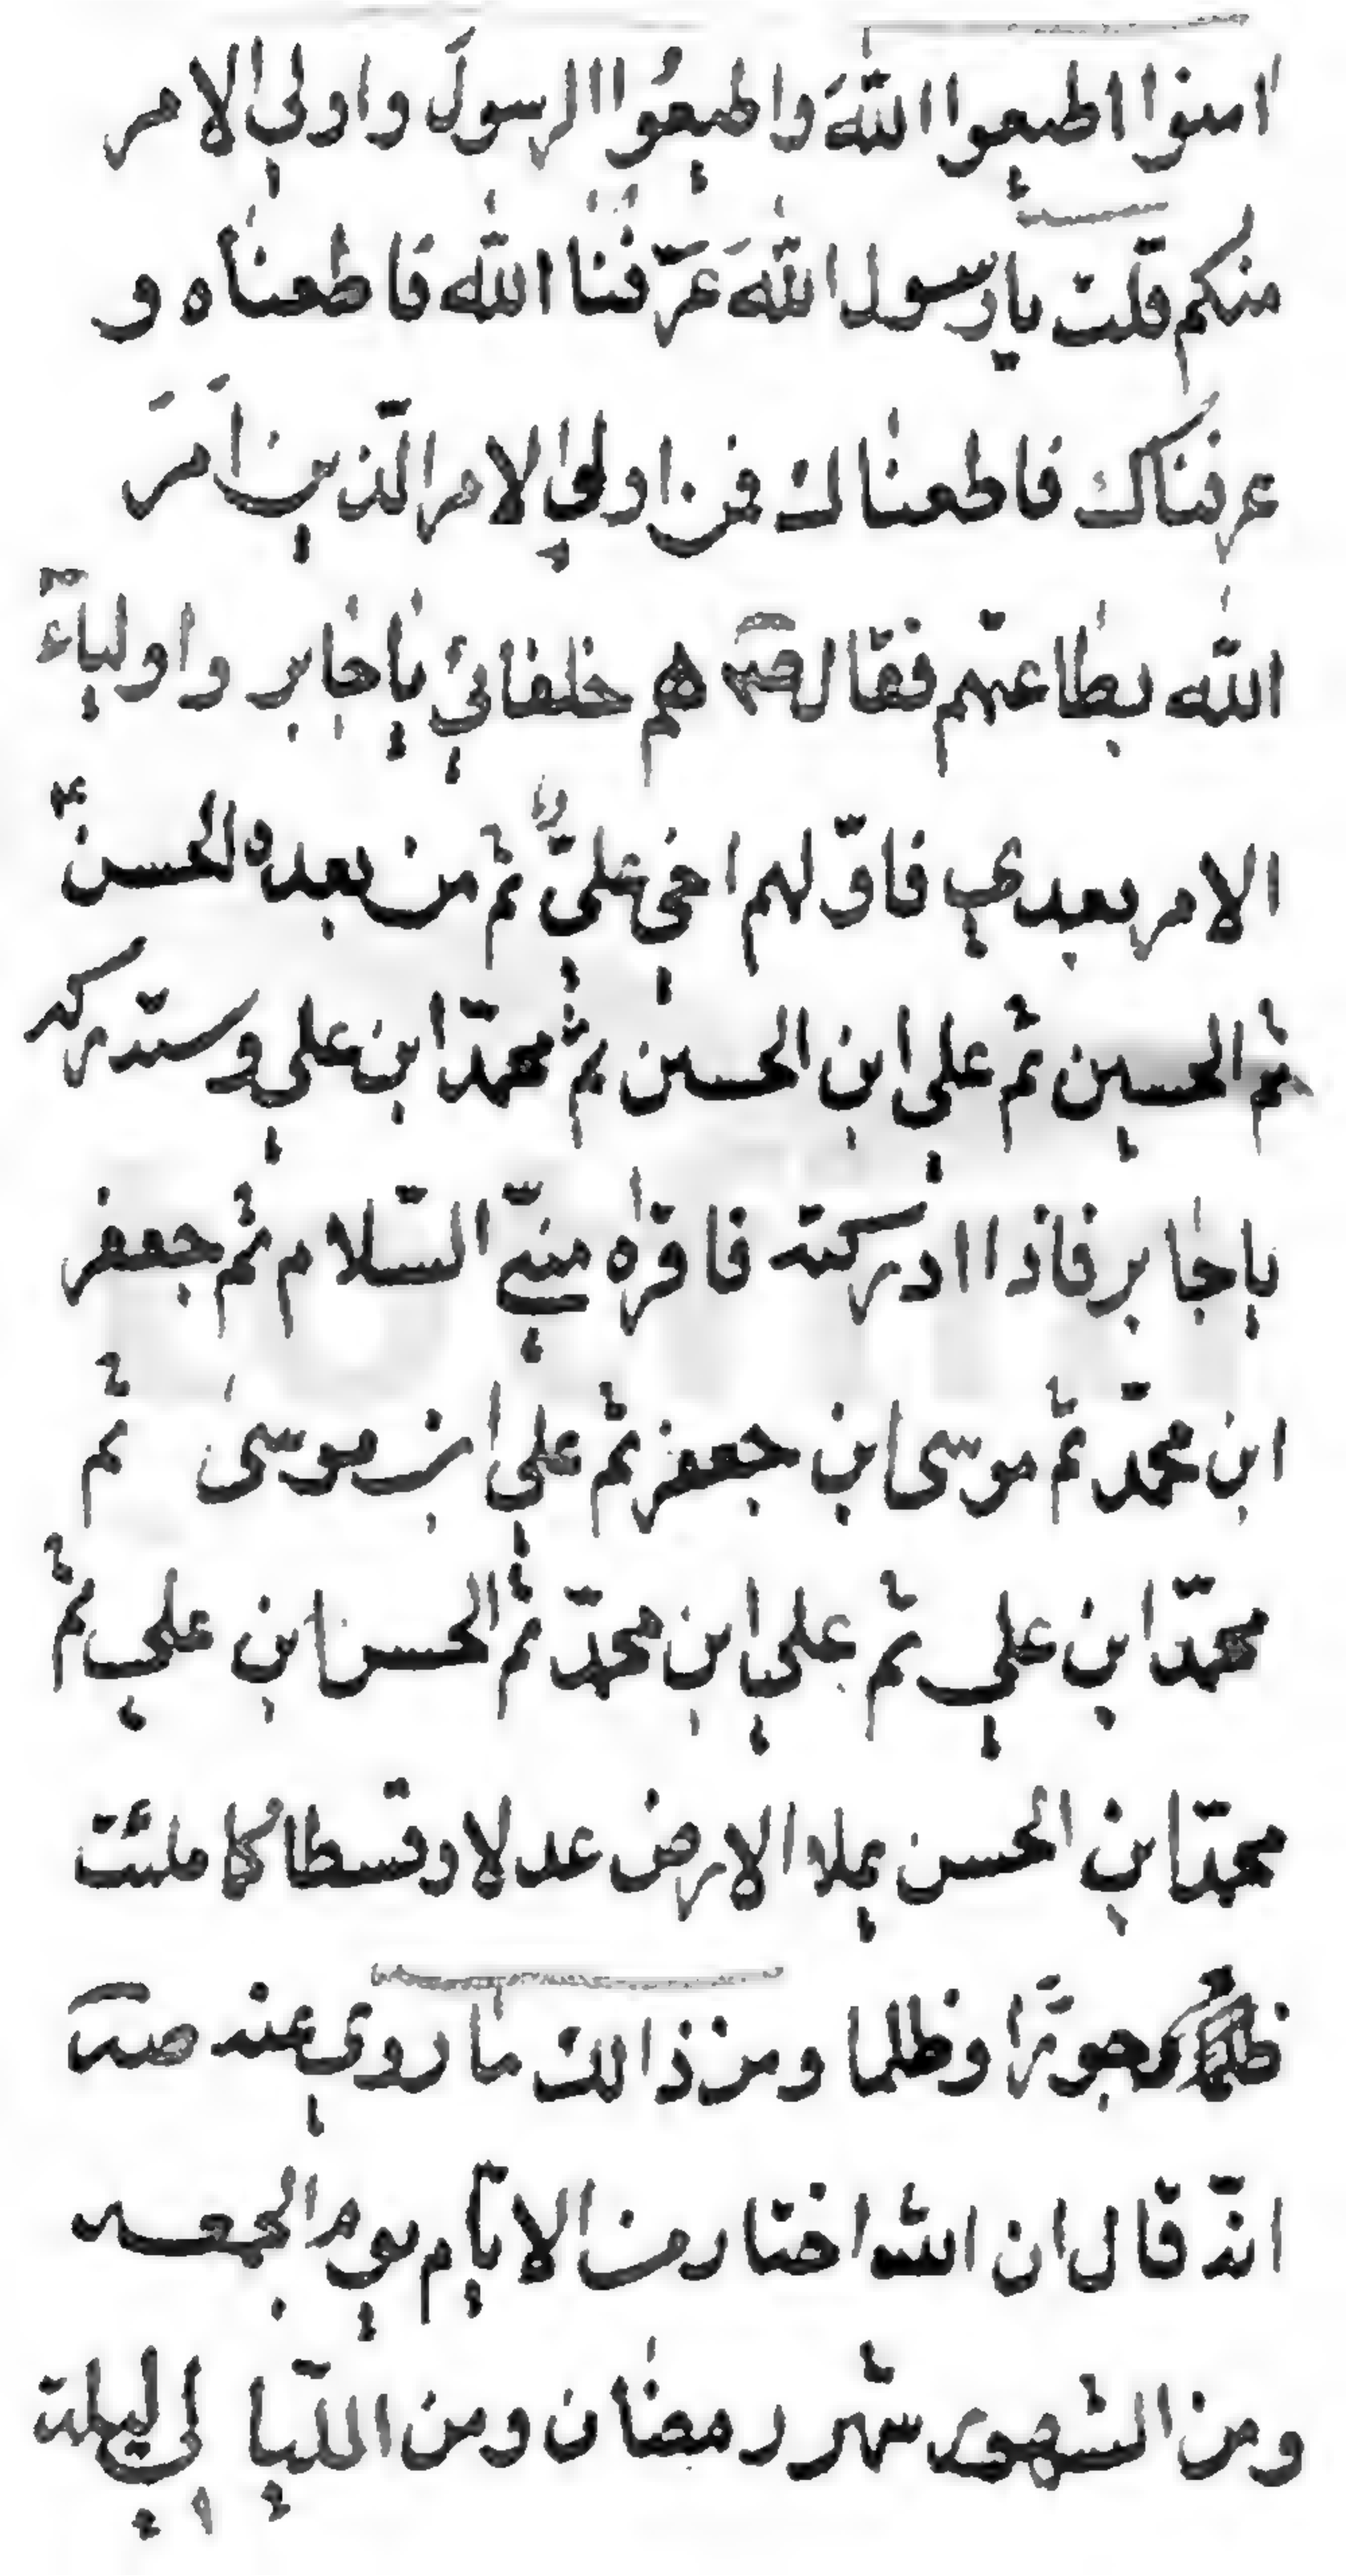 امنوا اطيعوا اللهَ واطيعُوا الرسولَ واولي الامر
منكم قلت يا رسول اللهَ عَرّفنا الله فاطعناه و
عرفناك فاطعناك فمن اولي الامر الّذين اَمَرَ
الله بطاعتهم فقال هم خلفائي يا جابر واولياءَ
الامر بعدي فاوّلهم اخي عليّ ثم من بعده الحسن
ثم الحسين ثم علي ابن الحسين ثم محمّد ابن علي وستدركه
يا جابر فاذا ادركته فاقرٔه منّي السّلام ثم جعفر
ابن محمّد ثم موسى ابن جعفر ثم علي ابن موسى ثم
محمّد ابن علي ثم علي ابن محمّد ثم الحسن ابن علي ثم
محمّد ابن الحسن يملا الارض عدلا وقسطا كما ملئت
جورًا وظلما ومن ذالك ما روي عنه
انّه قال ان الله اختار من الايّام يوم الجمعه
ومن الشهور شهر رمضان ومن اللّيالي ليلة